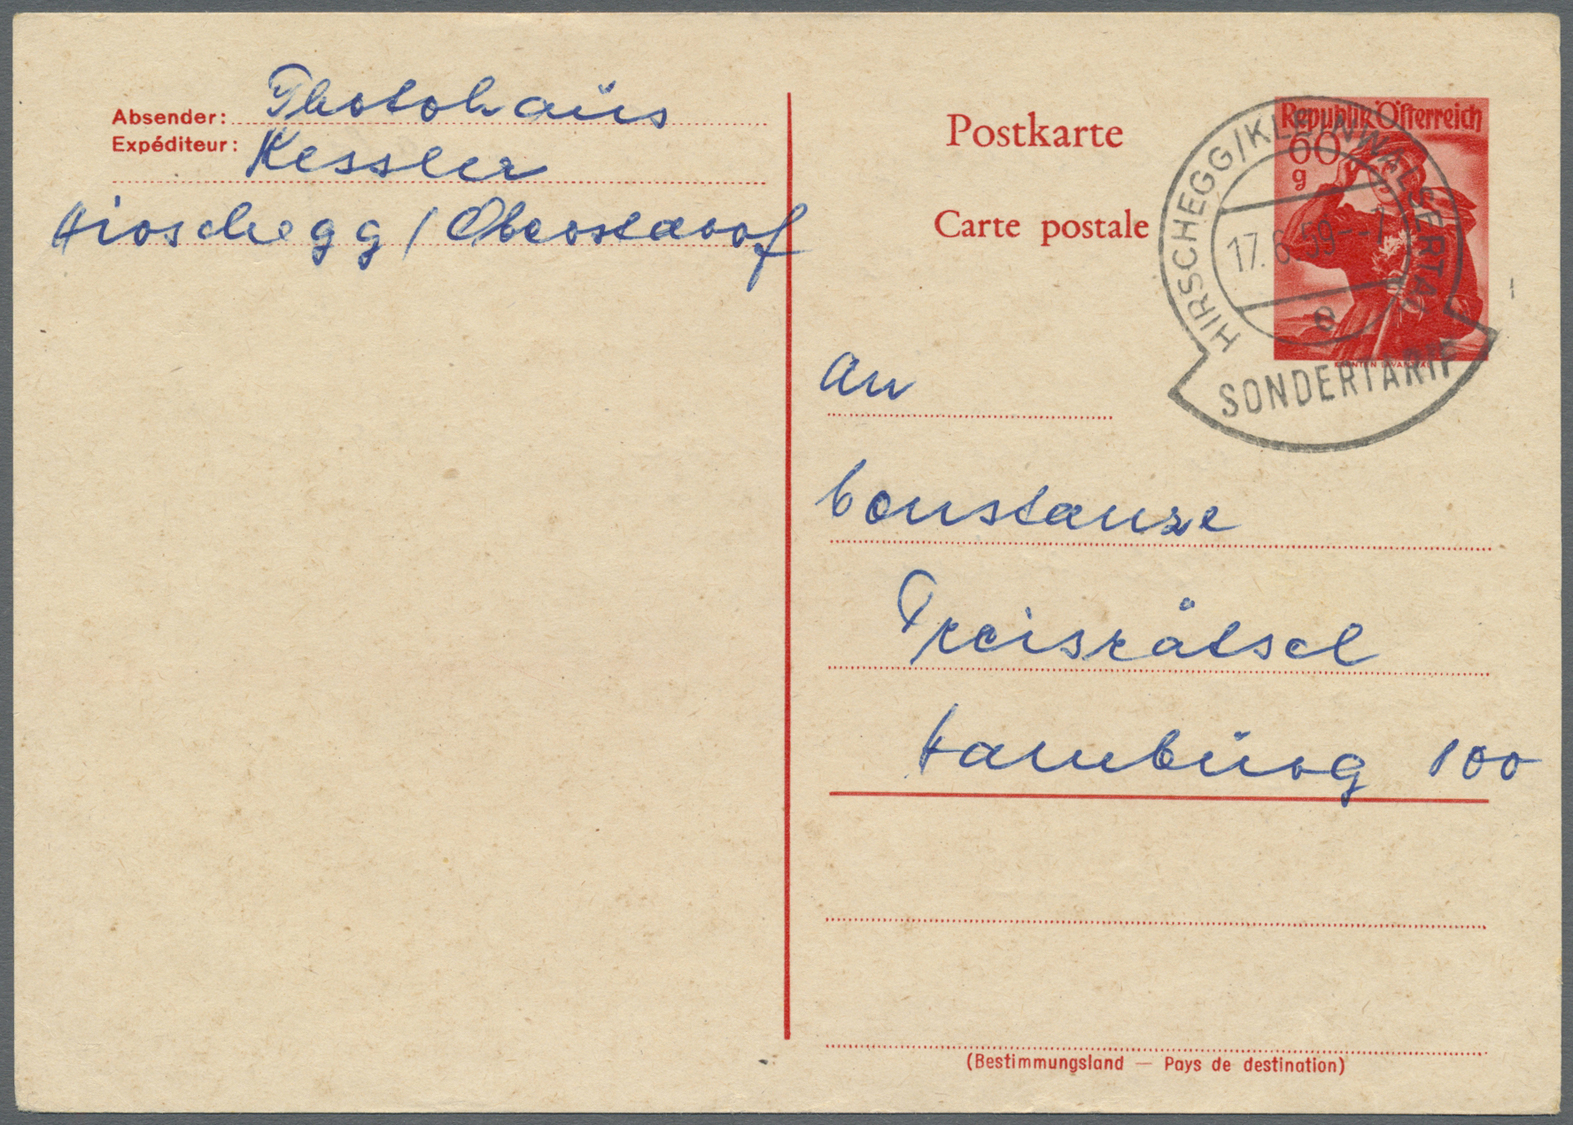 Absender: Photohaus
Expéditeur: Kessler
Hirschegg / Oberstdorf
Postkarte
Carte postale
Republik Österreich
60
g
HIRSCHEGG/KLEINWALSERTAL
17. 6. 59--1
e
SONDERTARIF
An
Constanze
Preisrätsel
Hamburg 100
(Bestimmungsland — Pays de destination)